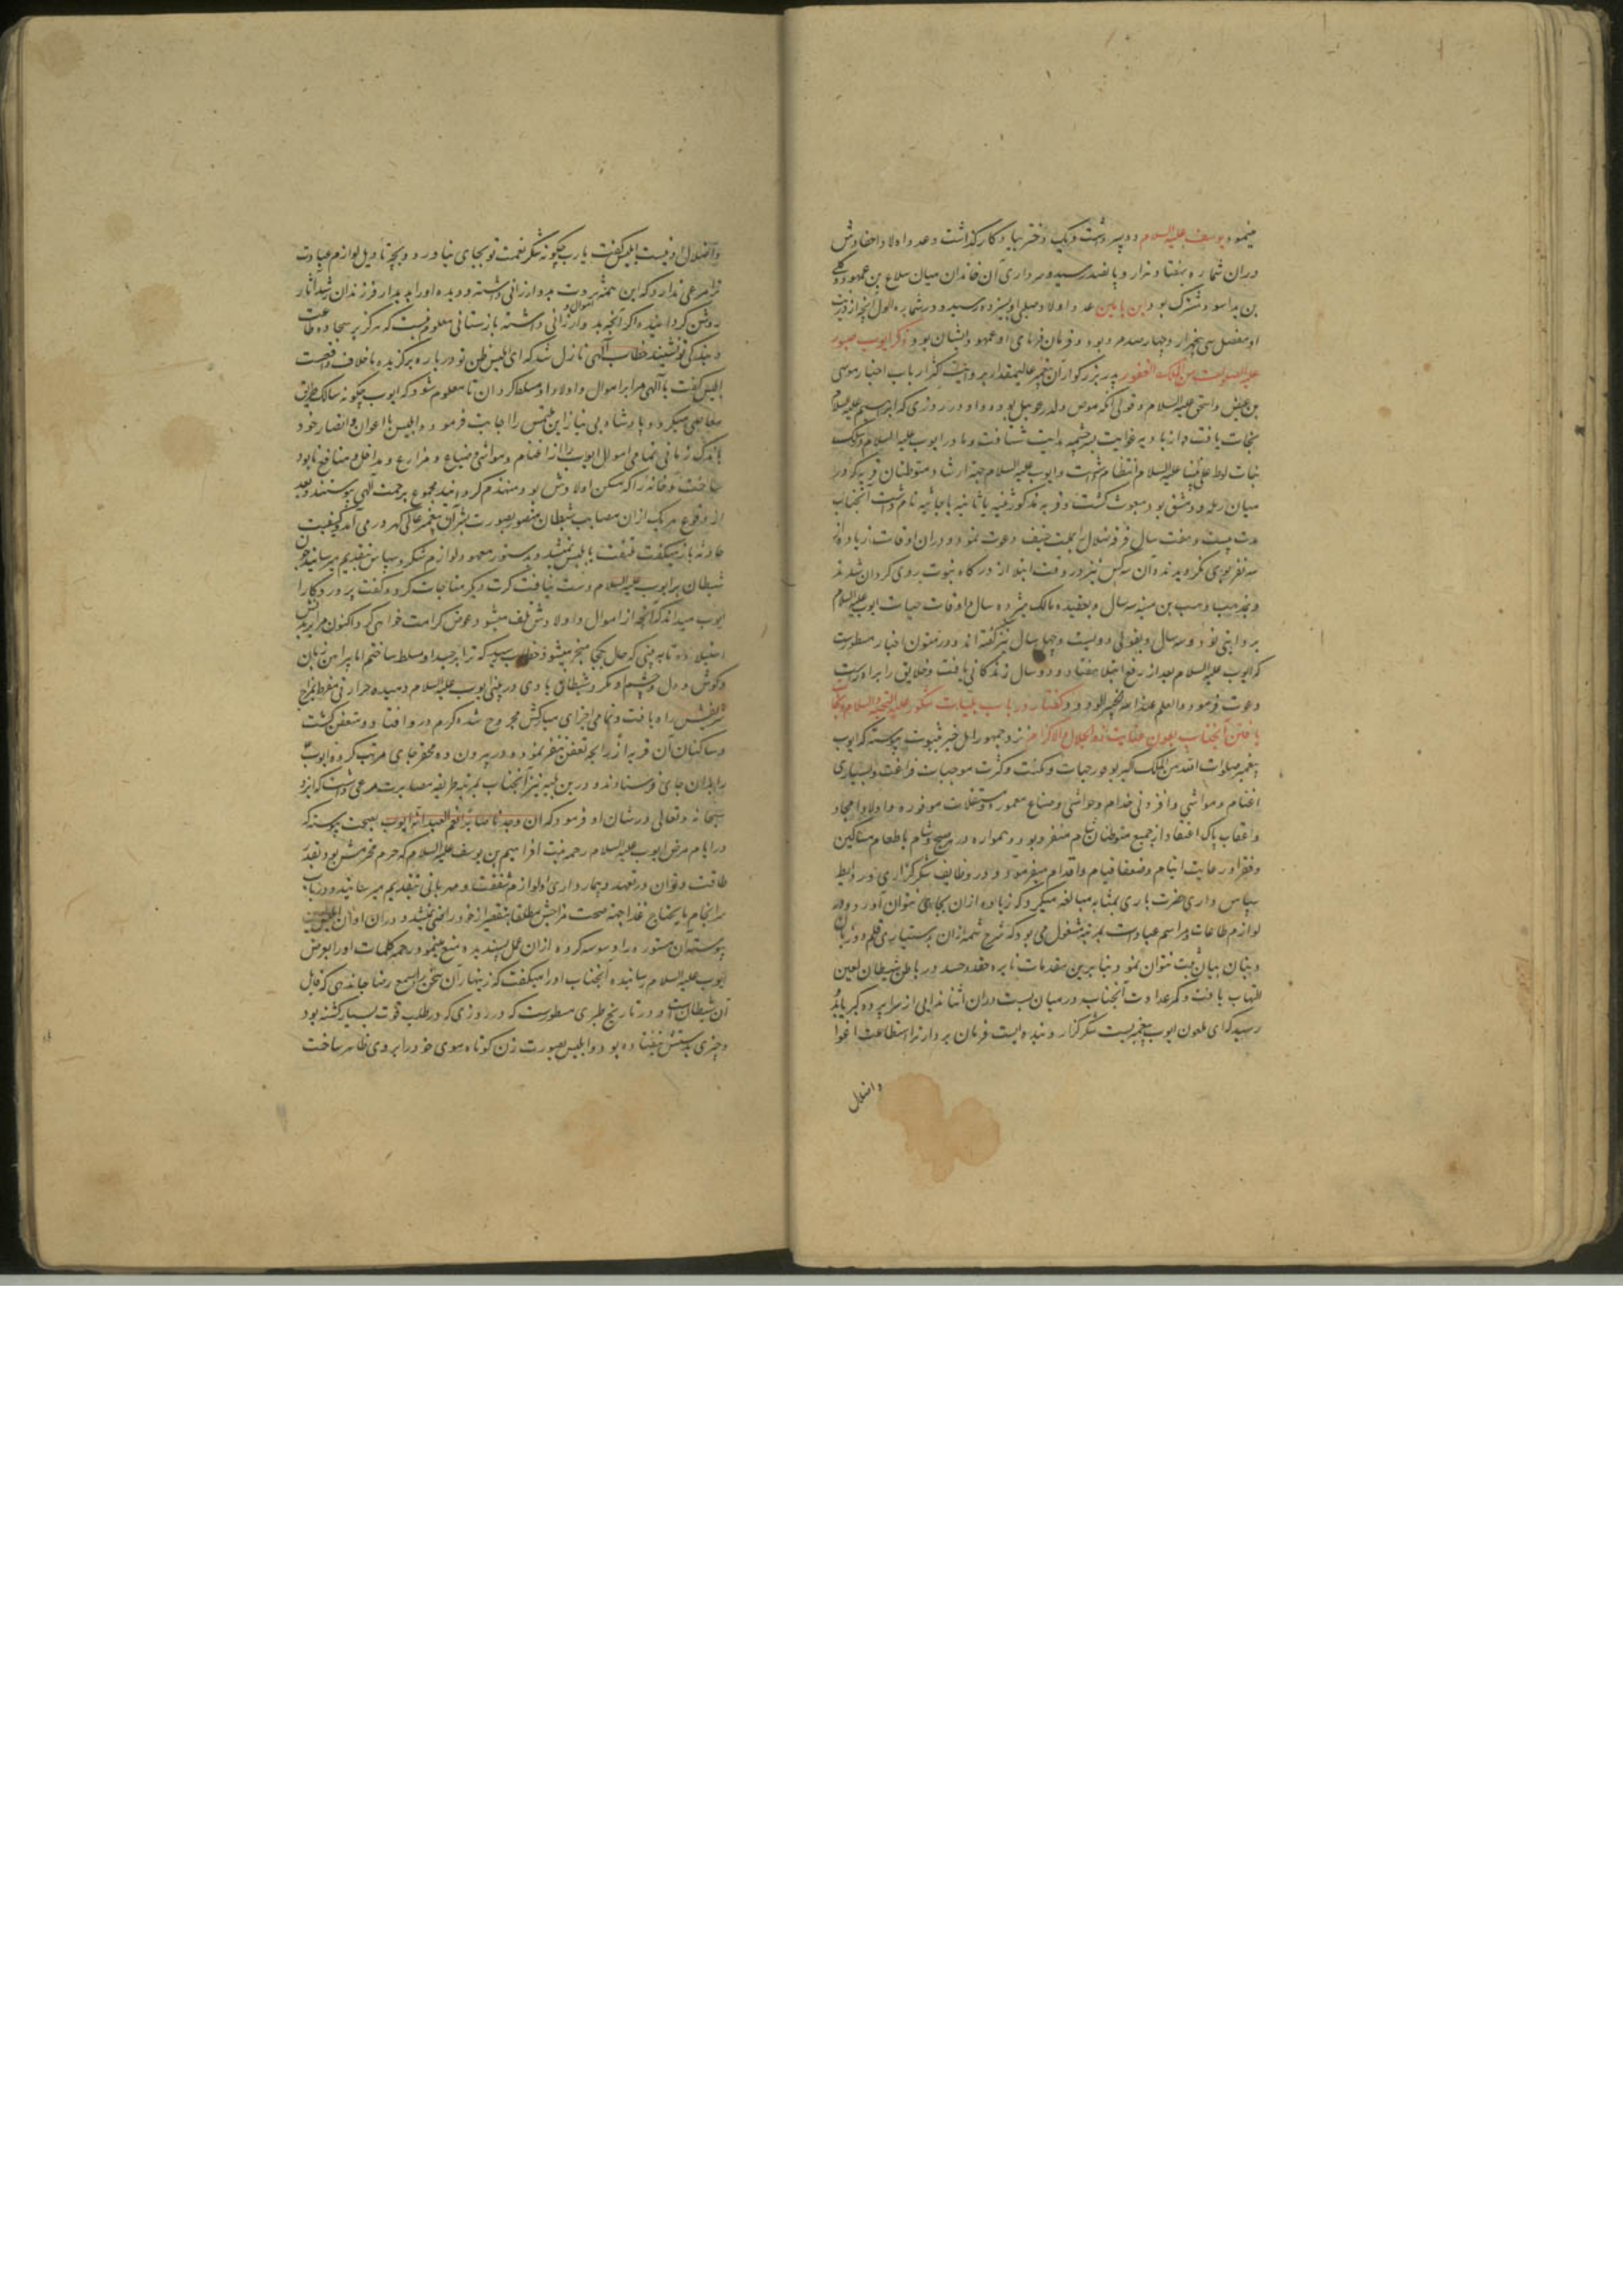 مینمود و یوسف علیه السلام دو پسر داشت و یک دختر بیادگار گذاشت و عدد اولاد و احفادش
دران شماره بهفتاد و هزار و پانصد رسید و سرداری آن خاندان میان سلاع بن عمهود و
بن پداسود مشترک بود و ابن یامین عدد اولاد صلبی او بسیزده رسید و در شماره اول آنچه از ذریت
او مفضل سی پنجهزار و چهارصد مرد بود و فرمان فرمای او عمهود ایشان بود ذکر ایوب صبور
علیه الصلوات من الملک الغفور پدر بزرگوار آن پیغمبر عالیمقدار بروایت اکثر ارباب اخبار موسی
بن عیض و اسحق علیه السلام و قولی آنکه موص ولد رعویل بود و او در روزی که ابراهیم علیه السلام
نجات یافت از بادیه غوایت بسرچشمه هدایت شتافت و مادر ایوب علیه السلام در سلک
بنات لوط علی نبینا علیه السلام انتظام داشت و ایوب علیه السلام جهة ارشاد متوطنان قریه که در
میان رمله و دمشق بود مبعوث گشت و قریه مذکور بثنیه یا ثانیه یا جاثیه نام داشت آنجناب
مدت بیست و هفت سال فرقه ضلال را بملت حنیف دعوت نمود و دران اوقات زیاده از
سه نفر بوی نگرویدند و آن سه کس نیز در وقت ابتلا از درگاه نبوت روی گردان شدند
و بمذهب وهب بن منبه سه سال و بعقیده مالک هیژده سال اوقات حیات ایوب علیه السلام
بروایتی نود و سه سال و بقولی دویست و چهل سال نیز گفته اند و در متون اخبار مسطورست
که ایوب علیه السلام بعد از رفع ابتلا هفتاد و دو سال زندگانی یافت و خلایق را براه راست
دعوت فرمود و العلم عند الله الخبیر الودود گفتار در باب بلیات شکور علیه التحیة والسلام و نجات
یافتن آنجناب بعون عنایت ذو الجلال والاکرام نزد جمهور اهل خبر بثبوت پیوسته که ایوب
پیغمبر صلوات الله من الملک الکبیر بوفور حیات و مکنت و کثرت موجبات فراغت و بسیاری
اغنام و مواشی و افزونی خدام و حواشی و ضیاع معموره و مستغلات موفوره و اولاد امجاد
و اعقاب پاک اعتقاد از جمیع متوطنان شام منفرد بود و همواره در صبح و شام باطعام مساکین
و فقرا و رعایت ایتام و ضعفا قیام و اقدام میفرمود و در وظایف شکرگزاری و روابط
سپاس داری حضرت باری بمثابه مبالغه میکرد که زیاده ازان بجای نتوان آورد و در
لوازم طاعات و مراسم عبادات بمرتبه مشغول می بود که شرح شمه ازان بدستیاری قلم دو زبان
و بنان بیان مثبت نتوان نمود بنابرین مقدمات نایره حقد و حسد در باطن شیطان لعین
التهاب یافت و کمر عداوت آنجناب در میان بست دران اثنا ندایی از سراپرده کبریا بدو
رسید که ای ملعون ایوب پیغمبریست شکرگزار و بنده ایست فرمان بردار ترا استطاعت اغوا
و اضلال
و اضلال او نیست ابلیس گفت یا رب چگونه شکر نعمت تو بجای نیاورد و بچه تاویل لوازم عبادت
ترا مرعی ندارد که این همه ثروت بدو ارزانی داشته و دیده او را بدیدار فرزندان رشد آثار
روشن گردانیده اگر آنچه بدو از اموال ارزانی داشته بازستانی معلوم نیست که هرگز بر سجاده طاعت
و بندگی تو نشیند خطاب آلهی نازل شد که ای ابلیس ظن تو درباره برگزیده ما خلاف واقعست
ابلیس گفت یا آلهی مرا بر اموال و اولاد او مسلط گردان تا معلوم شود که ایوب چگونه سالک طریق
معاصی میگردد پادشاه بی نیاز این ملتمس را اجابت فرموده ابلیس با اعوان و انصار خود
باندک زمانی تمامی اموال ایوب را از اغنام و مواشی و ضیاع و مزارع و مداخل و منافع نابود
ساخت و خانه را که مسکن اولادش بود منهدم گردانید مجموع برحمت آلهی پیوستند و بعد
از وقوع هر یک ازان مصایب شیطان متصور بصورت بشر آن پیغمبر عالی گهر در می آمد و کیفیت
حادثه باز میگفت ملتفت بابلیس نمیشد و بدستور معهود لوازم شکر و سپاس بتقدیم میرسانید چون
شیطان بر ایوب علیه السلام دست نیافت کرت دیگر مناجات کرد و گفت پروردگارا
ایوب میداند که آنچه از اموال و اولادش تلف میشود عوض کرامت خواهی کرد اکنون مرا بر بدنش
استیلا ده تا ببینی که حال بکجا منجر میشود خطاب رسید که ترا بر جسد او مسلط ساختم اما پیرامن زبان
و گوش و دل و چشم او مگرد شیطان بادی در بینی ایوب علیه السلام دمیده حرارتی مفرط بمزاج
شریفش راه یافت و تمامی اجزای مبارکش مجروح شده کرم در وی افتاد و متعفن گشت
و ساکنان آن قریه از رایحه تعفن تنفر نموده در بیرون ده محقر جای مرتب کرده ایوب
را بدان جای فرستادند و درین بلیه نیز آنجناب بمرتبه طریقه مصابرت مرعی داشت که ایزد
سبحانه و تعالی در شان او فرمود که ان وجدناه صابرا نعم العبد انه اواب بصحت پیوسته که
در ایام مرض ایوب علیه السلام رحمه بنت افراسیم بن یوسف علیه السلام که حرم محترمش بود بقدر
طاقت و توان در تعهد و بیمارداری او لوازم شفقت و مهربانی بتقدیم میرسانید و در باب
سرانجام مایحتاج غذا جهة صحت مزاجش مطلقا بتقصیر از خود راضی نمیشد و دران اوان ابلیس
پیوسته آن مستوره را وسوسه کرده ازان عمل پسندیده منع مینمود رحمه کلمات او را بعرض
ایوب علیه السلام رسانیده آنجناب او را میگفت که زینهار آن سخن را بسمع رضا جا ندهی که قایل
آن شیطان است و در تاریخ طبری مسطورست که در روزی که در طلب قوت بسیار گشته بود
و چیزی بدستش نیفتاده بود و ابلیس بصورت زن کوتاه موی خود را بروی ظاهر ساخت